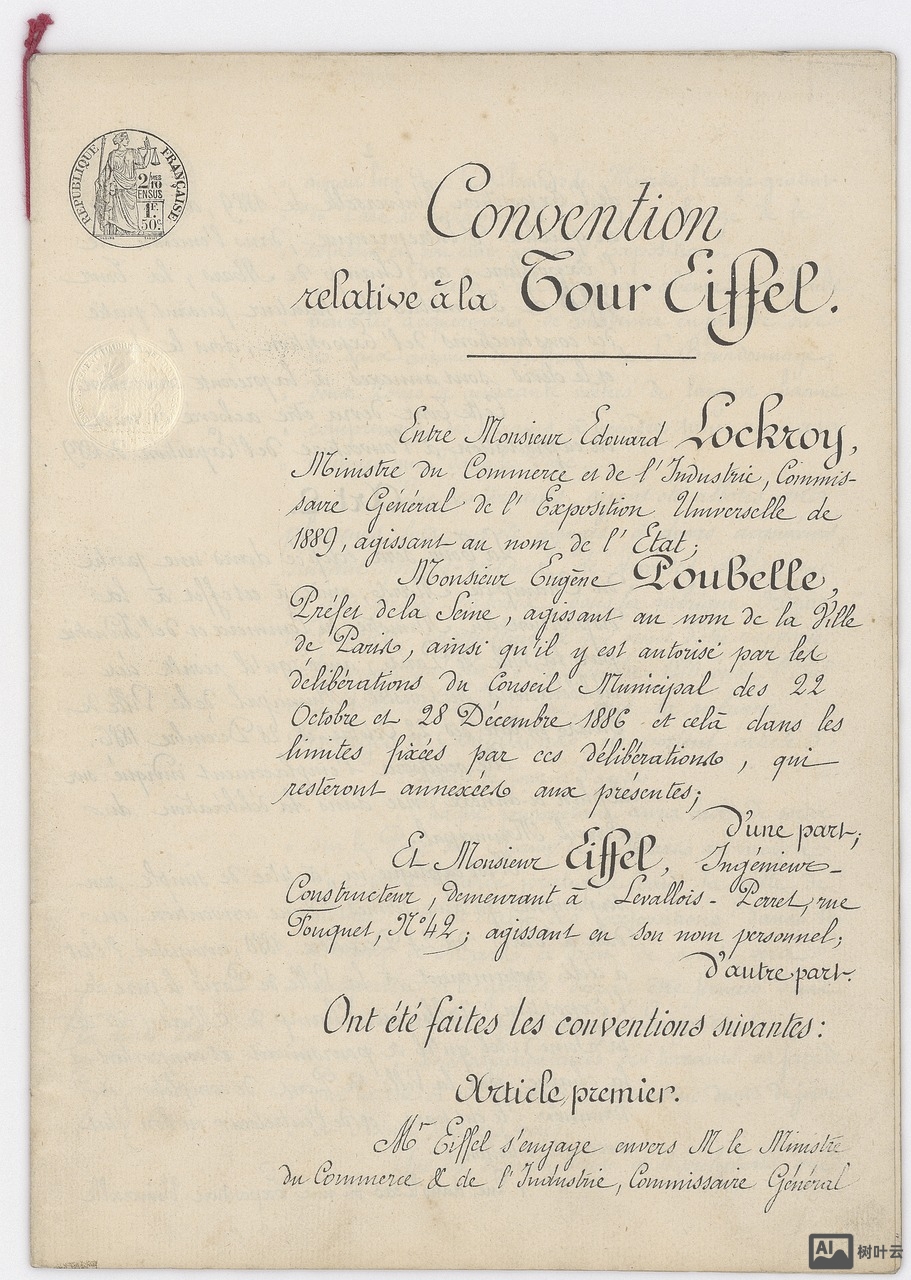 RÉPUBLIQUE FRANÇAISE
2/10
EN SUS
1F
50c
Convention
relative à la Tour Eiffel.
Entre Monsieur Edouard Lockroy,
Ministre du Commerce et de l'Industrie, Commis-
saire Général de l'Exposition Universelle de
1889, agissant au nom de l'Etat;
Monsieur Eugène Poubelle,
Préfet de la Seine, agissant au nom de la Ville
de Paris, ainsi qu'il y est autorisé par les
délibérations du Conseil Municipal des 22
Octobre et 28 Décembre 1886 et celà dans les
limites fixées par ces délibérations, qui
resteront annexées aux présentes;
d'une part;
Et Monsieur Eiffel, Ingénieur-
Constructeur, demeurant à Levallois-Perret, rue
Fouquet, N° 42; agissant en son nom personnel;
d'autre part.
Ont été faites les conventions suivantes:
Article premier.
Mr Eiffel s'engage envers M le Ministre
du Commerce & de l'Industrie, Commissaire Général
AI 树叶云